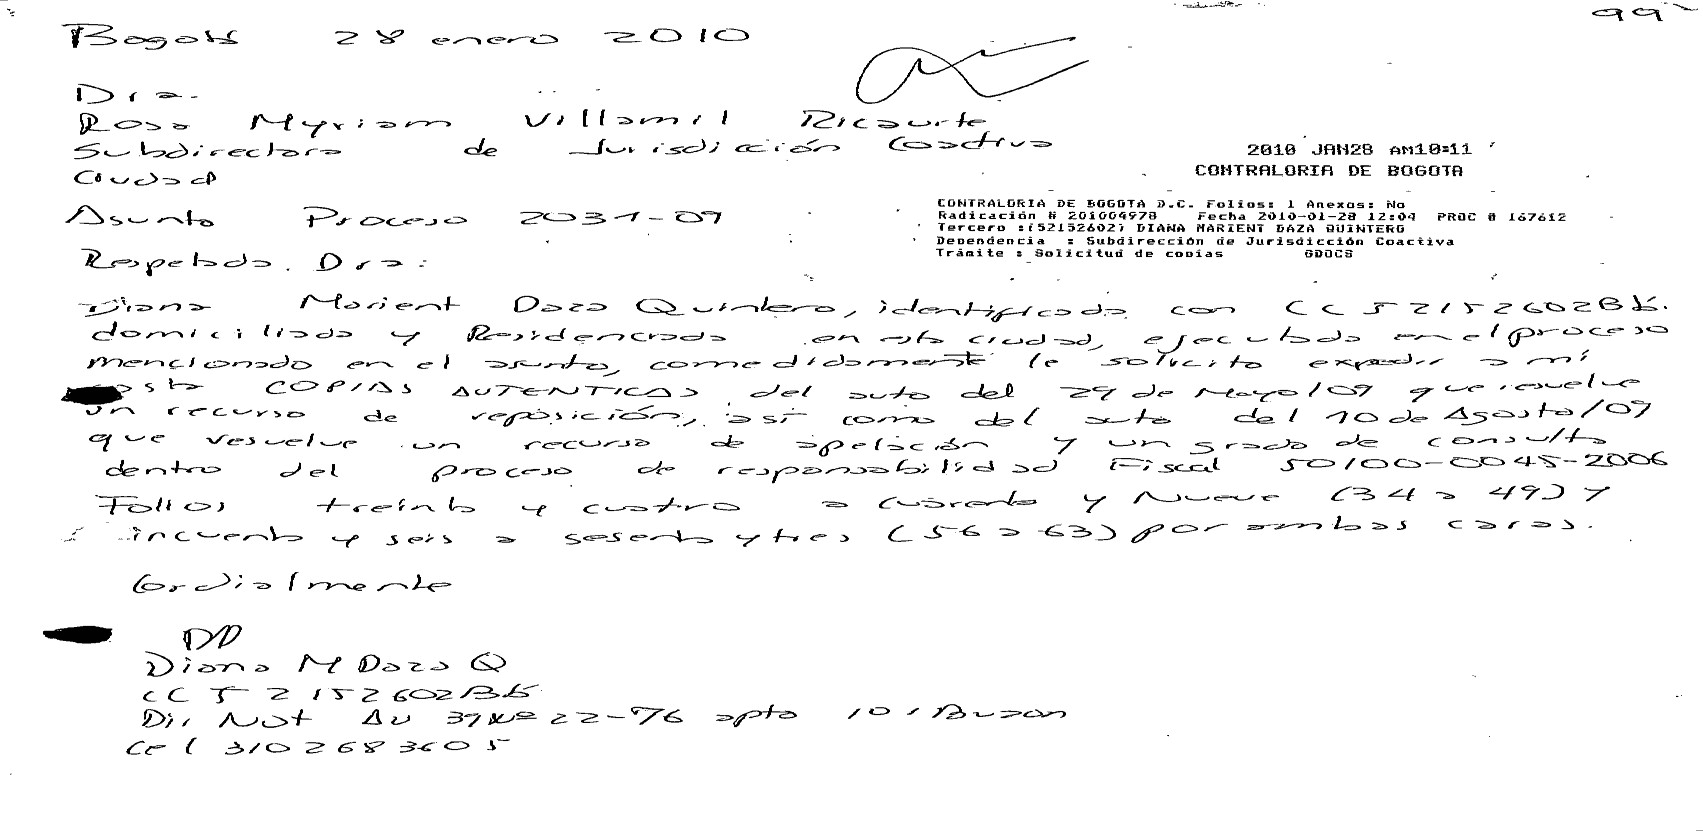 99
Bogotá 28 enero 2010
Dra.
Rosa Myriam Villamil Ricaurte
Subdirectora de Jurisdicción Coactiva
Ciudad
2010 JAN28 AM10:11
CONTRALORIA DE BOGOTA
CONTRALORIA DE BOGOTA D.C. Folios: 1 Anexos: No
Radicación # 201004978 Fecha 2010-01-28 12:04 PROC # 167612
Tercero :(52152602) DIANA MARIENT DAZA QUINTERO
Dependencia : Subdirección de Jurisdicción Coactiva
Trámite : Solicitud de copias GDOCS
Asunto Proceso 2031-09
Respetada. Dra:
Diana Marient Daza Quintero, identificada con CC 52152602 Bk.
domiciliada y Residenciada en esta ciudad, ejecutada en el proceso
mencionado en el asunto, comedidamente le solicito expedir a mi
COPIAS AUTENTICAS del auto del 29 de Mayo/09 que resuelve
un recurso de reposición, así como del auto del 10 de Agosto/09
que resuelve un recurso de apelación y un grado de consulta
dentro del proceso de responsabilidad Fiscal 50100-0045-2006
Folios treinta y cuatro a cuarenta y Nueve (34 a 49) y
cincuenta y seis a sesenta y tres (56 a 63) por ambas caras.
Cordialmente
Diana M Daza Q
CC 52152602 Bk
Dir Not Av 39 Nº 22-76 apto 101 Buzon
Cel 3102683605